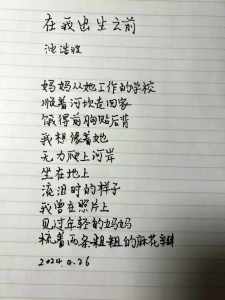 在我出生之前
池浩攻
妈妈从她工作的学校
顺着河坎走回家
饿得前胸贴后背
我想像着她
无力爬上河岸
坐在地上
流泪时的样子
我曾在照片上
见过年轻的妈妈
梳着两条粗粗的麻花辫
2024.9.26